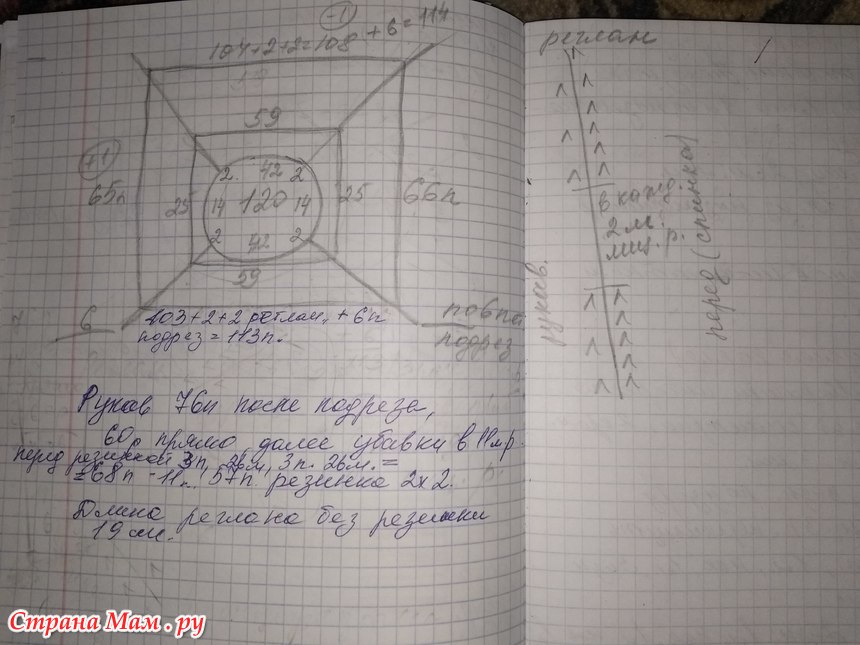 -1
104+2+2=108 +6=114
59
+1
2 42 2
65п 25 14 120 14 25 66п
2 42 2
59
6
103+2+2 реглан, +6п
подрез = 113п.
по 6 п
подрез
Рукав 76п после подреза,
60р прямо далее убавки в 11м р.
перед резинкой 3п, 2вм, 3п. 2вм. =
=68п -11 57п резинка 2х2.
Длина реглана без резинки
19 см.
реглан
в кажд.
2 м.
лиц. р.
рукав.
перед (спинка)
Страна Мам.ру